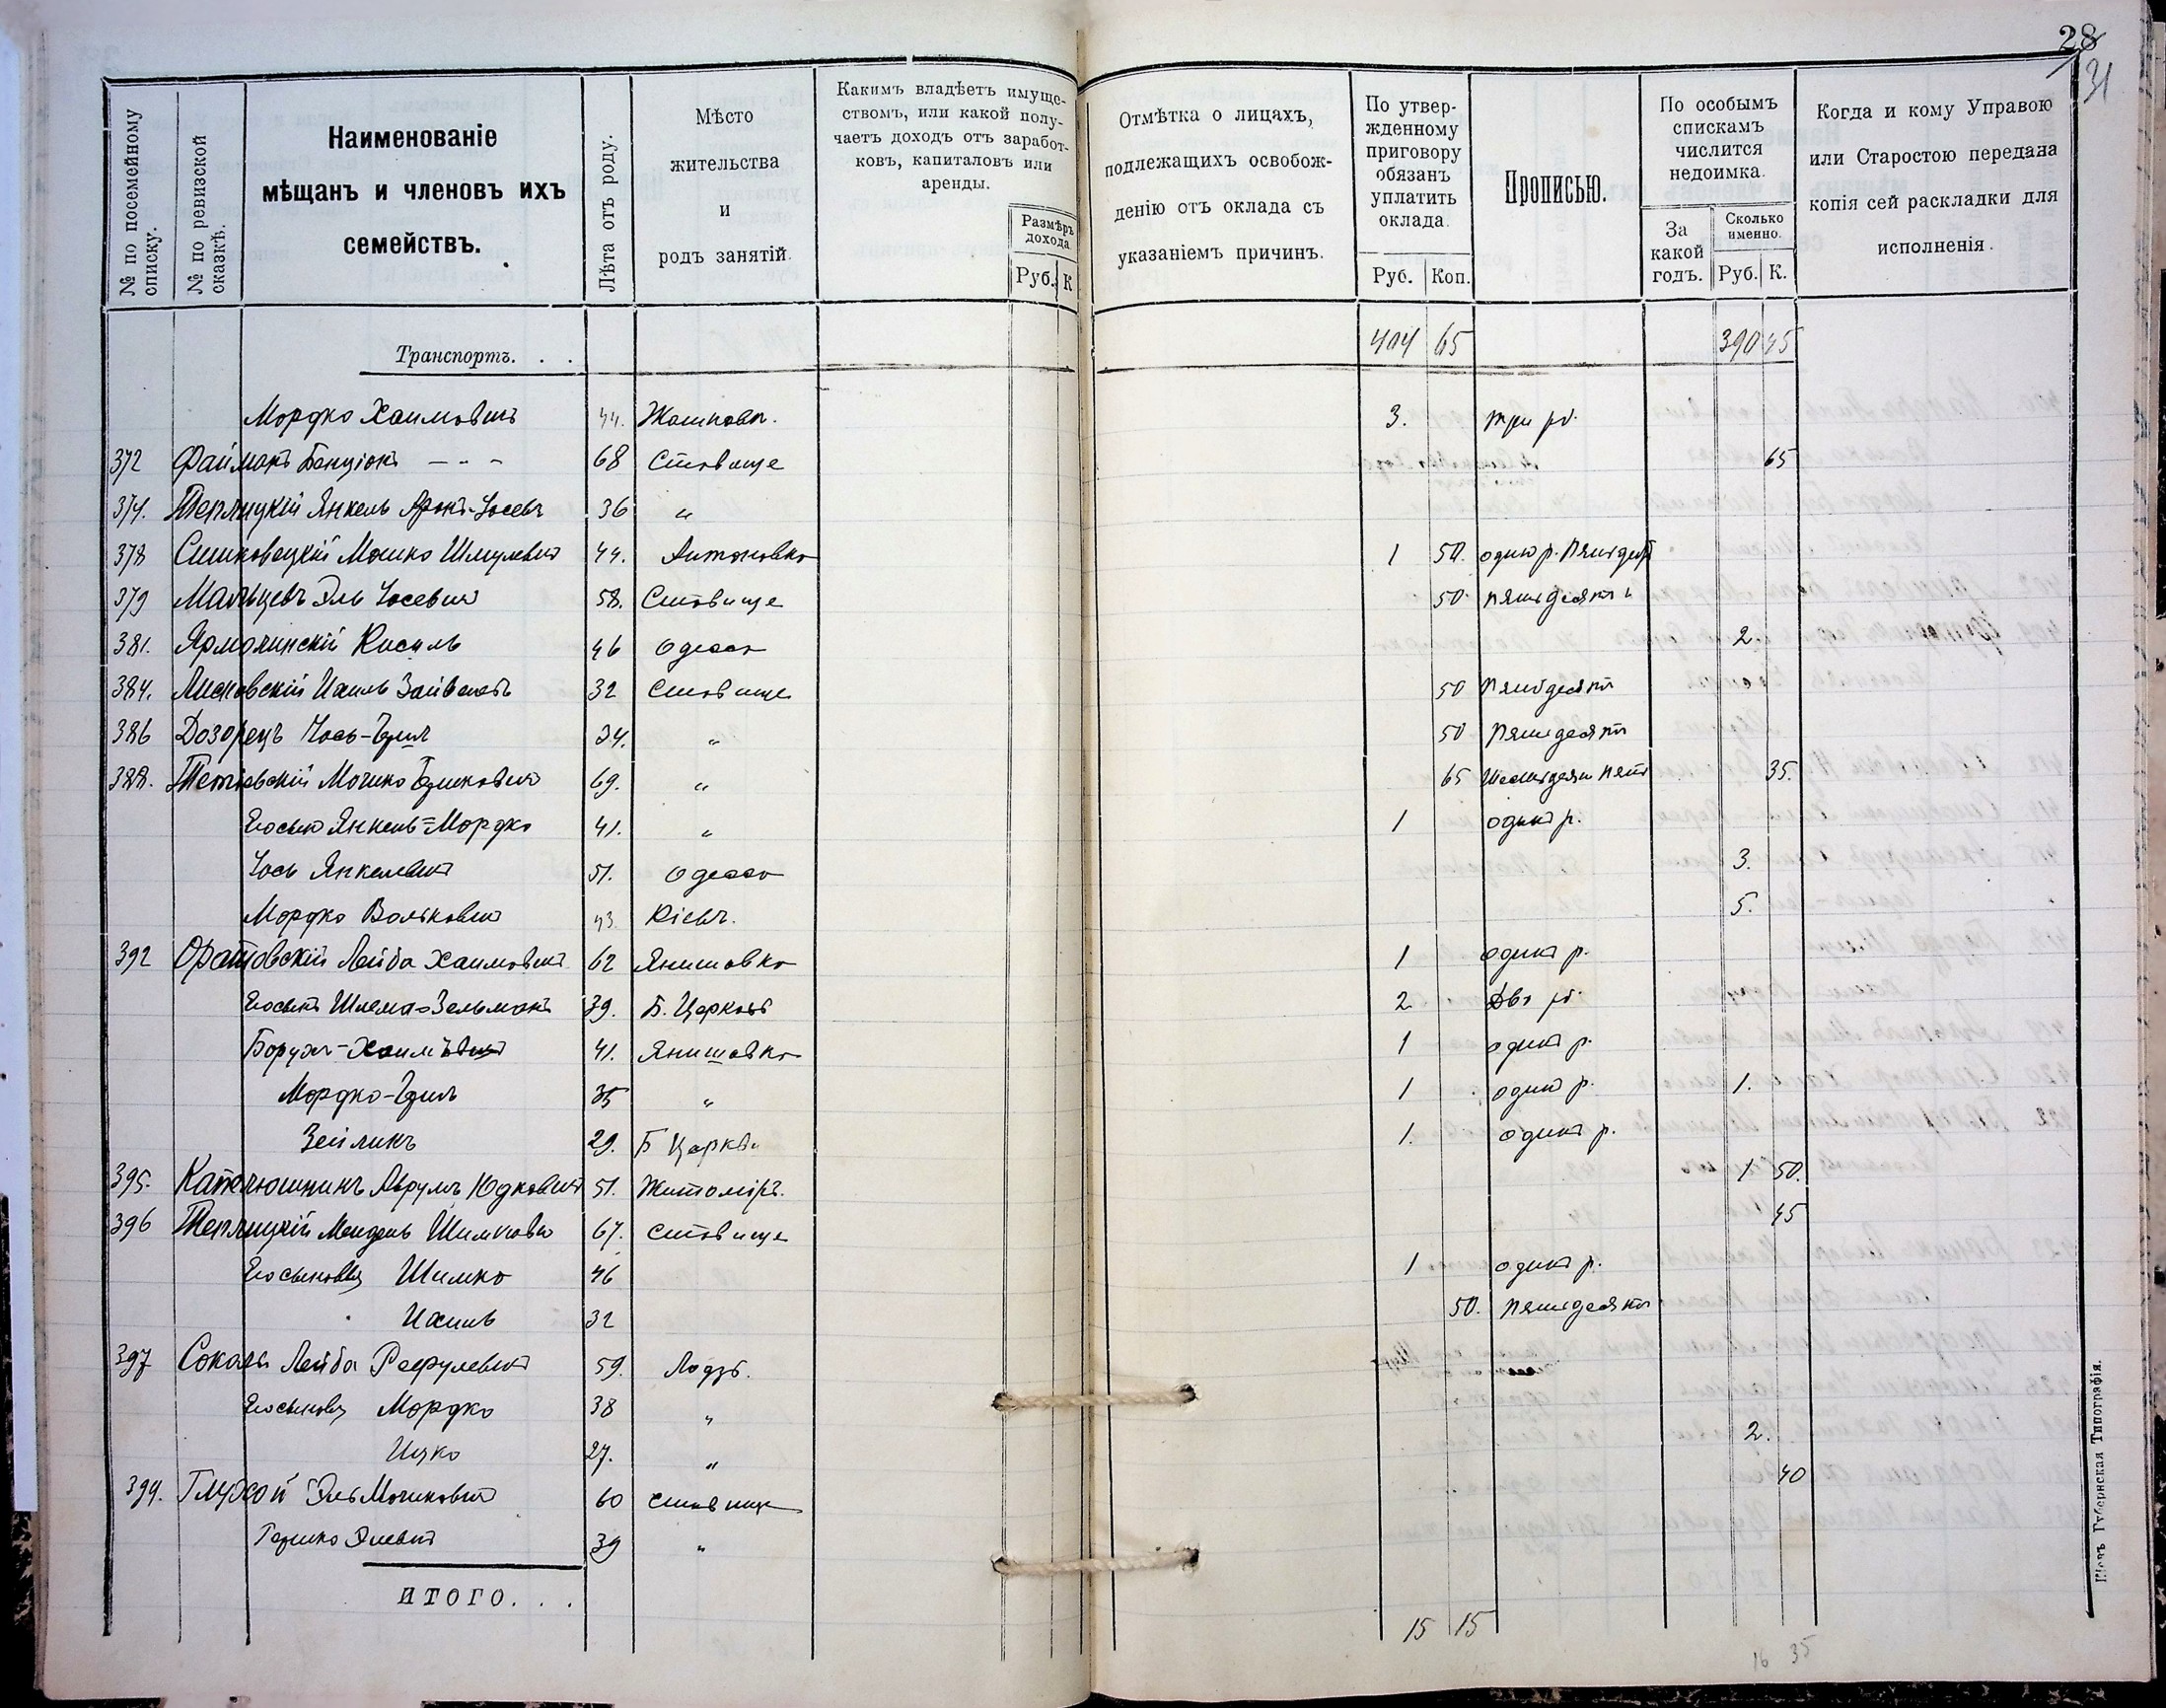 28
31
№ по посемейному списку.
№ по ревизской сказкѣ.
Наименованіе
мѣщанъ и членовъ ихъ
семействъ.
Лѣта отъ роду.
Мѣсто
жительства
и
родъ занятій.
Какимъ владѣетъ имуще-
ствомъ, или какой полу-
чаетъ доходъ отъ заработ-
ковъ, капиталовъ или
аренды.
Размѣръ
дохода.
Руб. К
Отмѣтка о лицахъ,
подлежащихъ освобож-
денію отъ оклада съ
указаніемъ причинъ.
По утвер-
жденному
приговору
обязанъ
уплатить
оклада.
Руб. Коп.
Прописью.
По особымъ
спискамъ
числится
недоимка.
За
какой
годъ.
Сколько
именно.
Руб. К.
Когда и кому Управою
или Старостою передана
копія сей раскладки для
исполненія.
Транспортъ. . . 404 65 390 45
Мордко Хаимовичъ 44. Жашковъ. 3. три рб.
372 Файманъ Бенціонъ 68 Ставище 65
374. Теплицкій Янкель Аронъ-Іосевъ 36 „
378 Сишковецкій Мошко Шмулевичъ 44. Антоновка 1 50. одинъ р. пятьдес
379 Мальцевъ Эль Іосевичъ 58. Ставище 50 пятьдесятъ
381. Ярмолинскій Кисиль 46 Одесса 2.
384. Лисновскій Ихиль Зайвелевъ 32 Ставище 50 пятьдесятъ
386 Дозорецъ Іось-Сруль 34. „ 50 пятьдесятъ
388. Тетіевскій Мошко Ицковичъ 69. „ 65 шестьдесятъ пять 35.
Его сынъ Янкель=Мордко 41. „ 1 одинъ р.
Іось Янкелевичъ 51. Одесса 3.
Мордко Вольковичъ 43. Кіевъ. 5.
392 Оратовскій Лейба Хаимовичъ 62 Янишовка 1 одинъ р.
Его сынъ Шлема=Зельманъ 39. Б. Церковь 2 два рб.
Борухъ-Хаимъ 41. Янишовка 1 одинъ р.
Мордко-Сруль 35 „ 1 одинъ р. 1.
Зейликъ 29. Б Церковь 1. одинъ р.
395. Катюшникъ Аврумъ Юдковичъ 51. Житоміръ. 1 50.
396 Теплицкій Мендель Шимковъ 67. Ставище 45
Его сыновья Шимко 46 1 одинъ р.
Ихиль 32 50. пятьдесятъ
397 Соколъ Лейба Рафулевичъ 59. Лодзь.
Его сыновья Мордко 38 „
Ицко 27. „ 2.
399. Глубкой Эль Мошковичъ 60 Ставище 40
Гершко Элевичъ 39 „
ИТОГО. . . 15 15
16 35
Кіевъ Губернская Типографія.